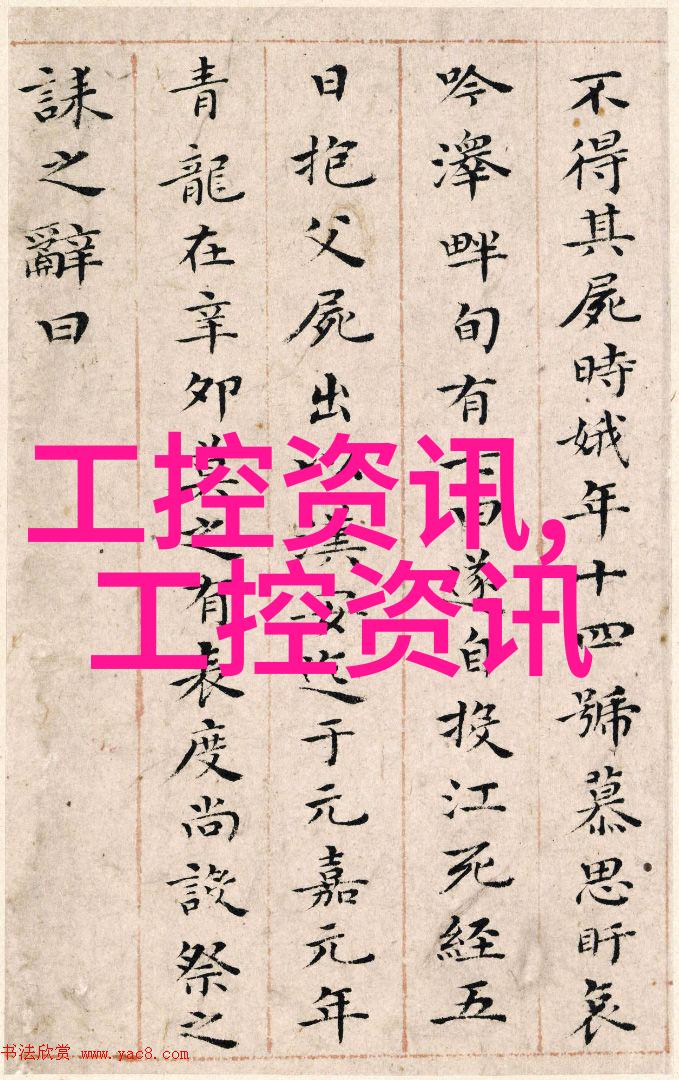 不得其屍時娥年十四號慕思盱哀
吟澤畔旬有日遂自投江死經五
日抱父屍出以漢安迄于元嘉元年
青龍在辛卯莫之有表度尚設祭之
誄之辭曰
工控资讯,
工控资讯
书法欣赏 www.yac8.com